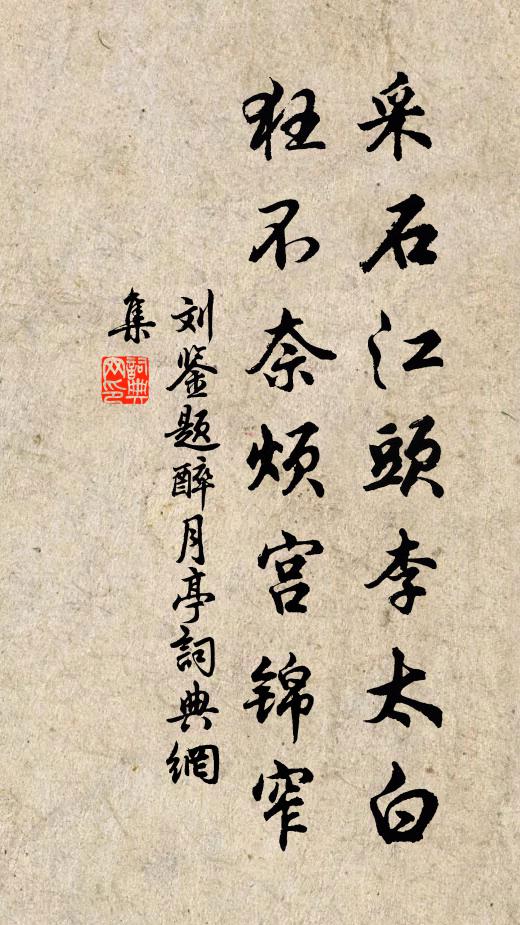 采石江頭李太白
狂不奈烦宫锦窄
刘鉴题醉月亭詞典網
集
詞典網印